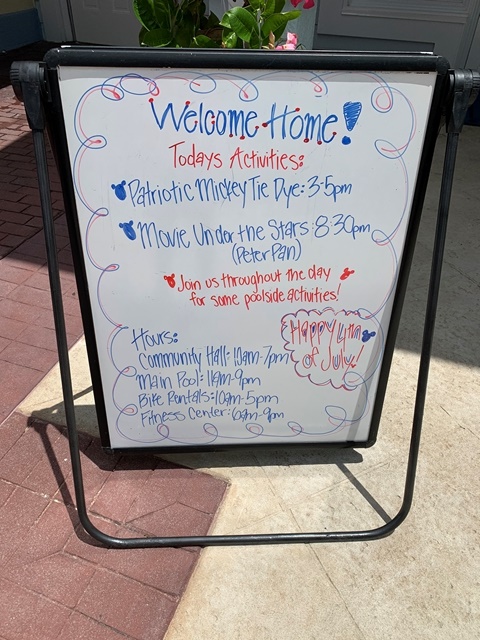 Welcome Home!
Todays Activities:
Patriotic Mickey Tie Dye: 3-5pm
Movie Under the Stars: 8:30pm
(Peter Pan)
Join us throughout the day
for some poolside activities!
Happy 4th
of July!
Hours:
Community Hall: 10am-7pm
Main Pool: 11am-9pm
Bike Rentals: 10am-5pm
Fitness Center: 6am-9pm